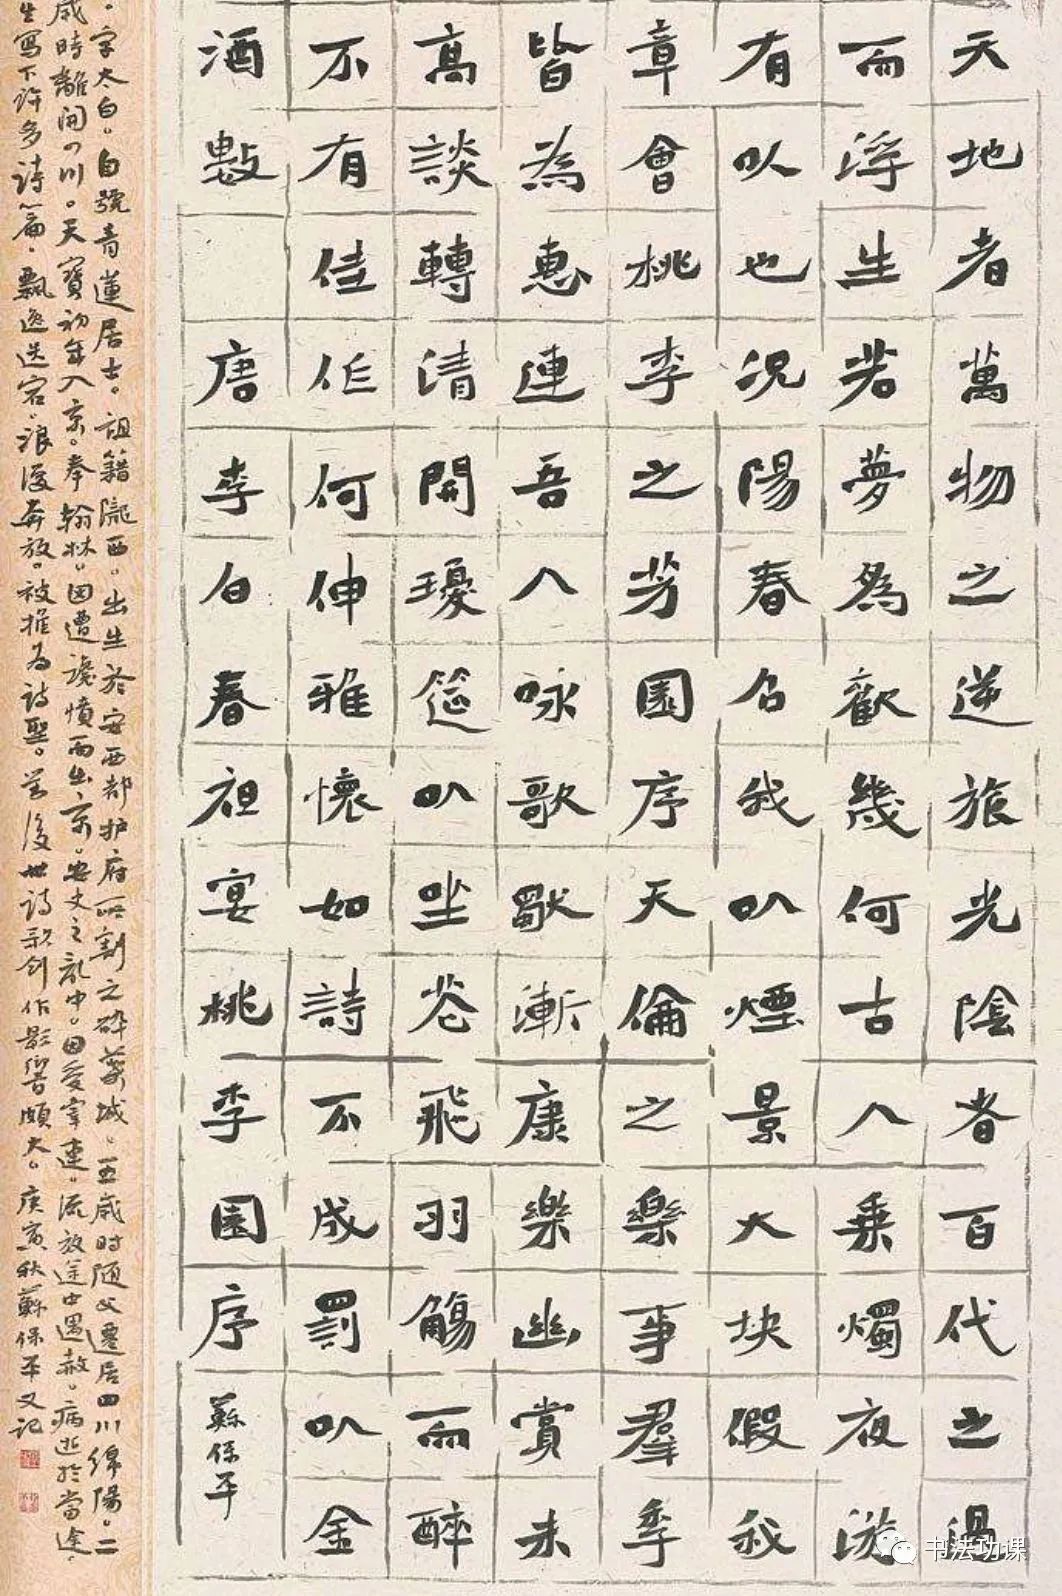 天地者萬物之逆旅光陰者百代之過
而浮生若夢為歡幾何古人秉燭夜游
有以也况陽春召我以煙景大块假我
章會桃李之芳園序天倫之樂事羣季
皆為惠連吾人咏歌獨慚康樂幽賞未
高談轉清開瓊筵以坐花飛羽觴而醉
不有佳作何伸雅懷如詩不成罰以金
酒數 唐李白春祖宴桃李園序 蘇保平
。字太白。自號青蓮居士。祖籍隴西。出生於安西都护府所割之碎葉城。五歲時随父遷居四川绵陽。二
歲時離開四川。天寶初年入京。奉翰林。因遭讒憤而出京。安史之亂中。因受牽連。流放途中遇赦。病逝於當途。
生寫下許多詩篇。飄逸送宕。浪漫奔放。被推為詩聖。對後世詩歌创作影響頗大。庚寅秋蘇保平又記
书法功课